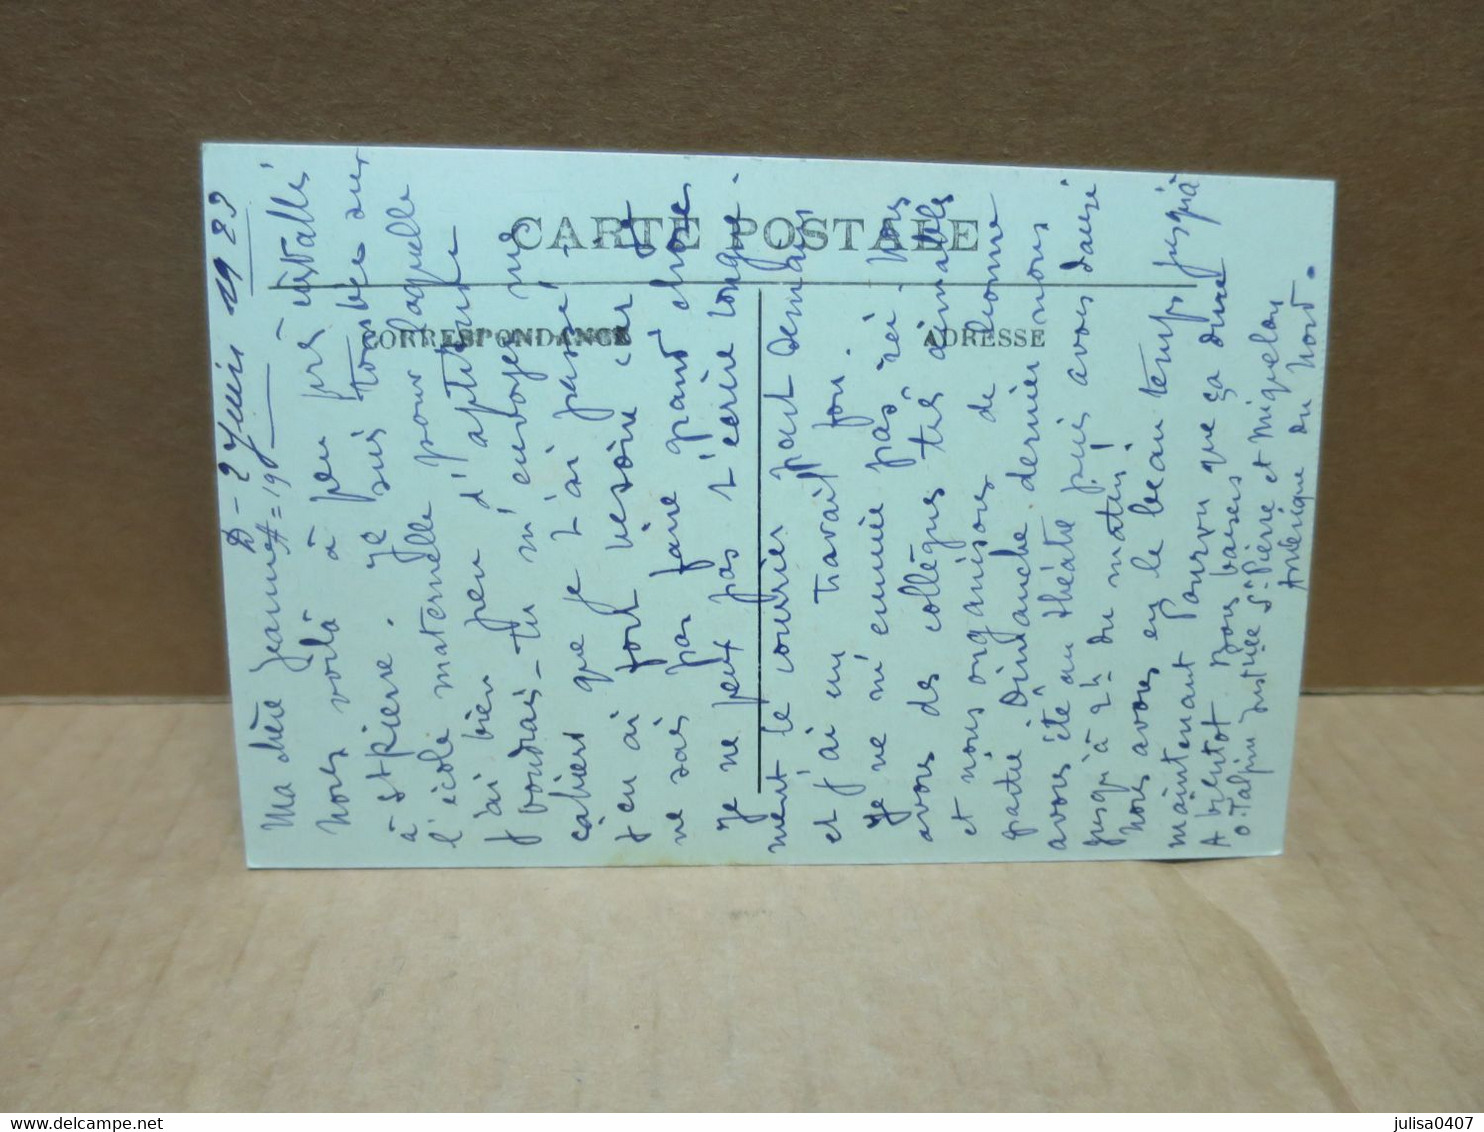 CARTE POSTALE
CORRESPONDANCE
ADRESSE
2 Juin 1923
Ma chère Jeannette
Nous voilà à peu près installés
à St Pierre. Je suis tombée sur
l'école maternelle pour laquelle
j'ai bien peu d'aptitude
voudrais-tu m'envoyer me
cahiers que je t'ai passé
j'en ai fort besoin car je
ne sais pas faire grand chose
Je ne peux pas t'écrire longue-
ment le courrier part demain
et j'ai un travail fou.
Je ne m'ennuie pas ici. nous
avons des collègues très aimables
et nous organisons de bonne
partie Dimanche dernier nous
avons été au théâtre puis avons dansé
jusqu'à 2h du matin!
Nous avons eu le beau temps jusqu'à
maintenant Pourvu que ça dure
A bientôt Bons baisers
O. Talpin St Pierre et Miquelon
Amérique du Nord.
julisa0407